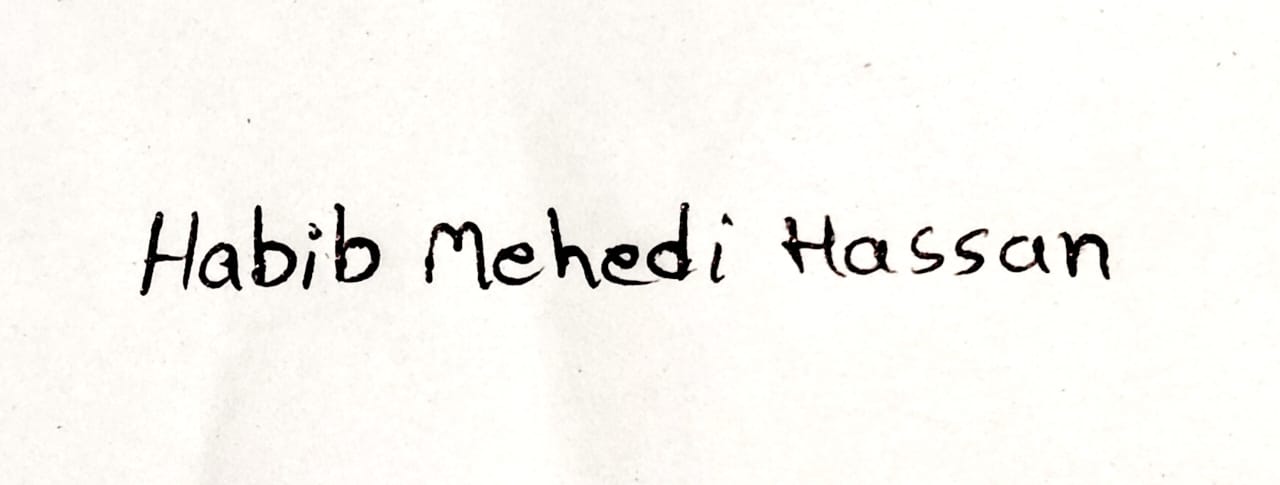 Habib Mehedi Hassan